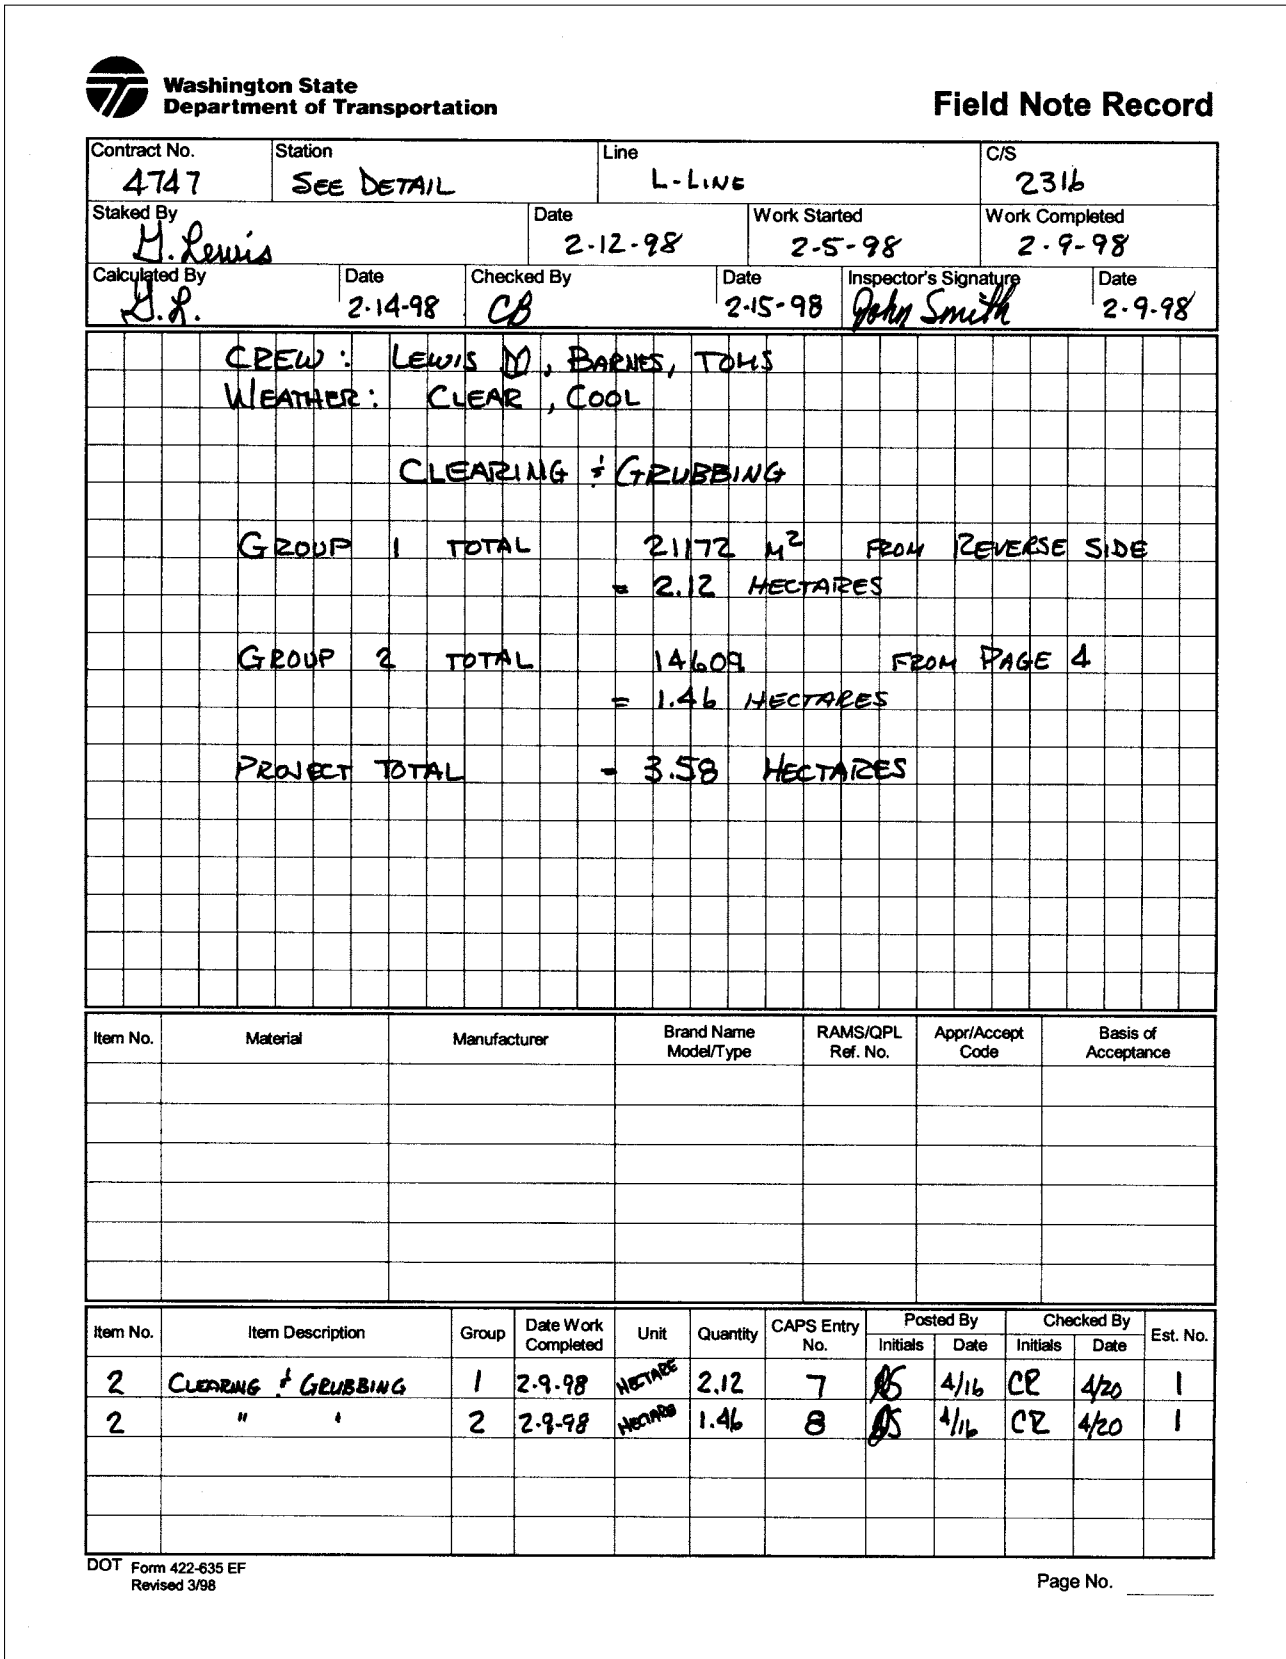 Washington State
Department of Transportation
Field Note Record
Contract No. Station Line C/S
4747 SEE DETAIL L-LINE 2316
Staked By Date Work Started Work Completed
G. Lewis 2-12-98 2-5-98 2-9-98
Calculated By Date Checked By Date Inspector's Signature Date
G.L. 2-14-98 CB 2-15-98 John Smith 2-9-98
CREW: LEWIS, BARNES, TOMS
WEATHER: CLEAR, COOL
CLEARING & GRUBBING
GROUP 1 TOTAL 21172 M² FROM REVERSE SIDE
= 2.12 HECTARES
GROUP 2 TOTAL 14609 FROM PAGE 4
= 1.46 HECTARES
PROJECT TOTAL = 3.58 HECTARES
Item No. Material Manufacturer Brand Name Model/Type RAMS/QPL Ref. No. Appr/Accept Code Basis of Acceptance
Item No. Item Description Group Date Work Completed Unit Quantity CAPS Entry No. Posted By Initials Date Checked By Initials Date Est. No.
2 CLEARING & GRUBBING 1 2-9-98 HECTARE 2.12 7 4/16 CR 4/20 1
2 " " 2 2-9-98 HECTARE 1.46 8 4/16 CR 4/20 1
DOT Form 422-635 EF
Revised 3/98
Page No.